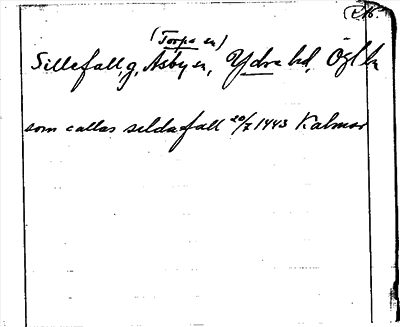 (Torpa sn)
Sillefall, g, Asby sn, Ydre hd, Ögl ln
som callas sildafall 20/7 1443 Kalmar